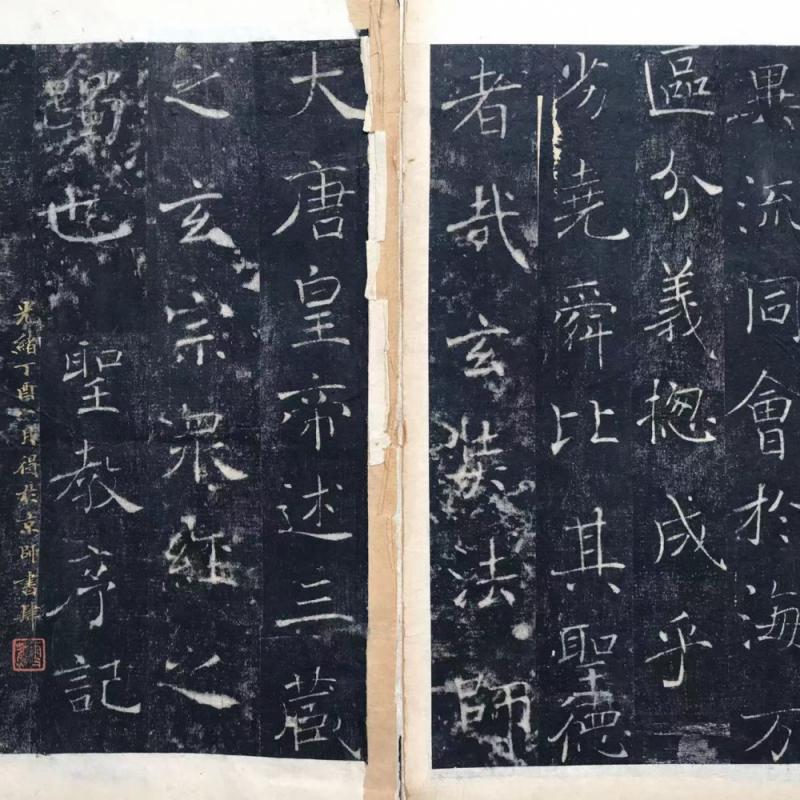 異流同會於海万
區分義揔成乎
劣堯舜比其聖德
者哉玄奘法師
大唐皇帝述三藏
之玄宗眾經之
躅也 聖教序記
光緒丁酉八月得於京師書肆